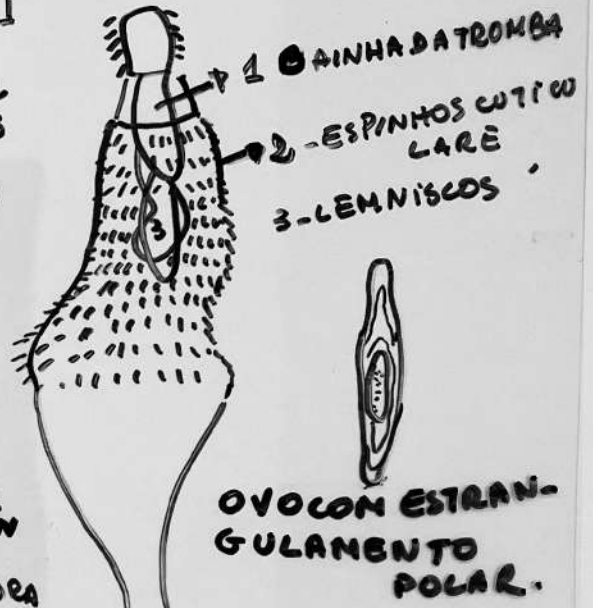 1 BAINHA DA TROMBA
2 - ESPINHOS CUTICU
LARE
3 - LEMNISCOS
3
OVO COM ESTRAN-
GULAMENTO
POLAR.